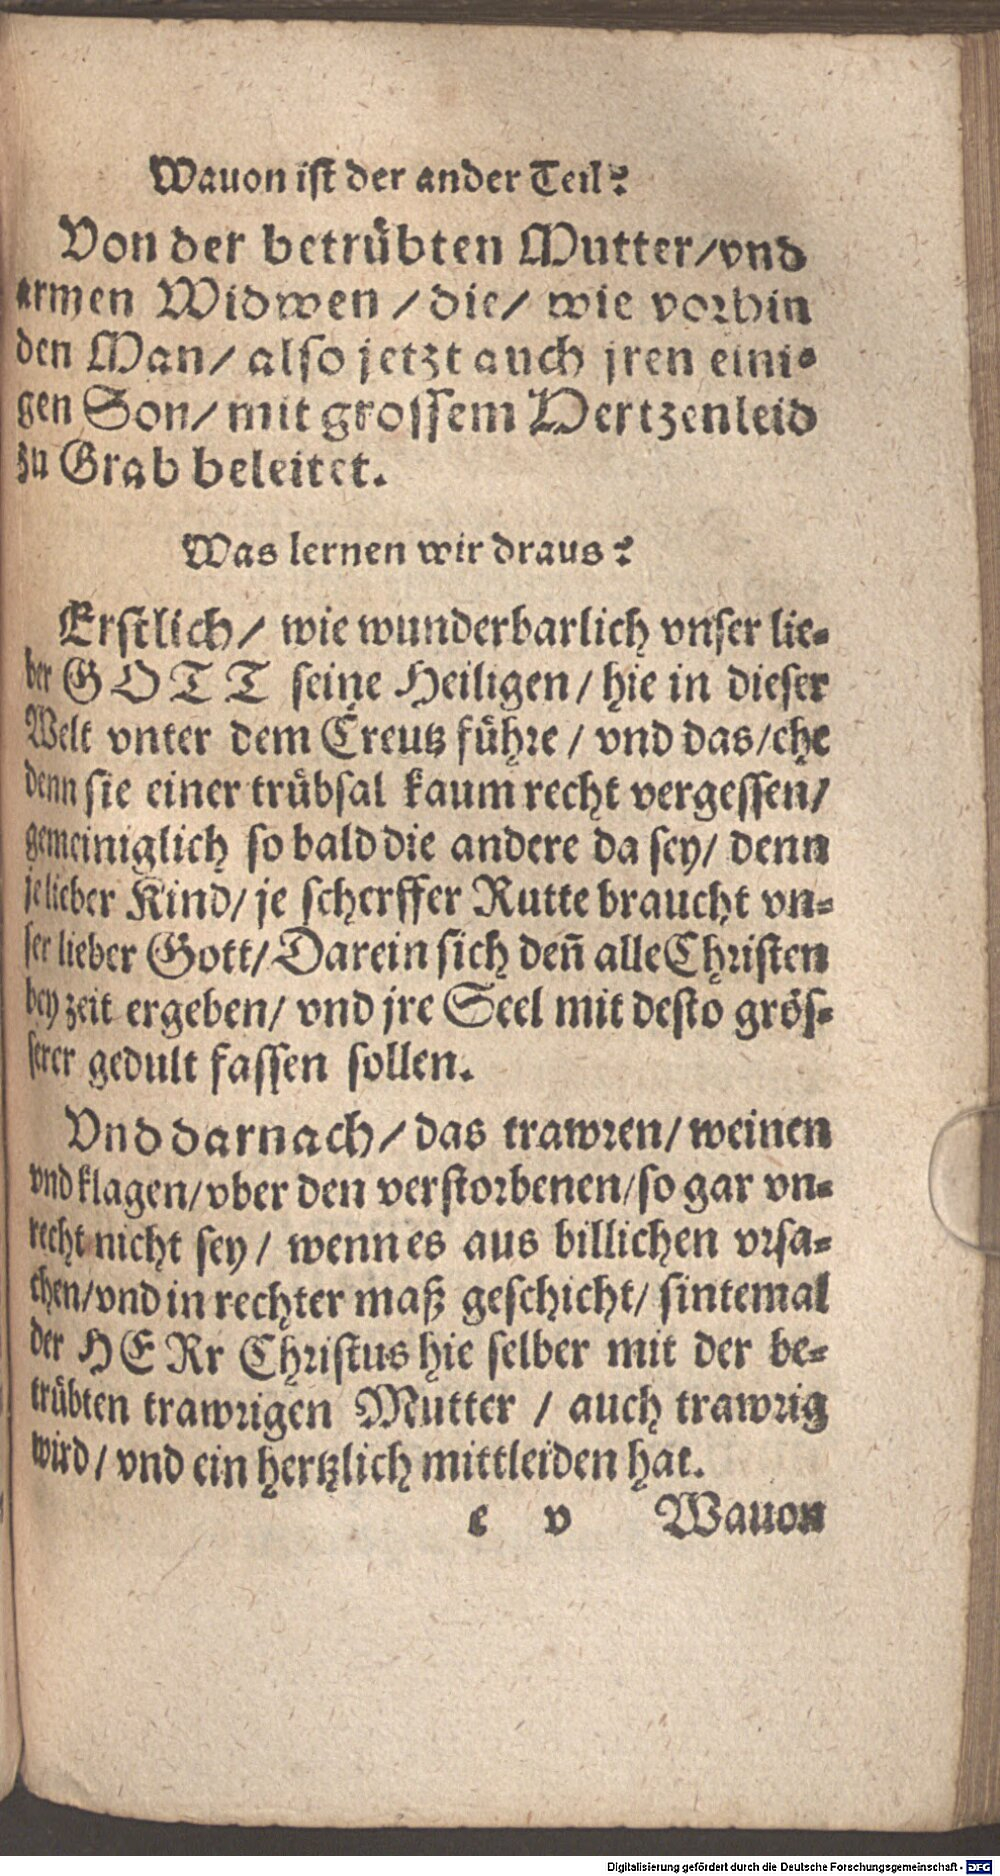 Wauon ist der ander Teil?
Von der betrübten Mutter/vnd
armen Widwen / die/ wie vorhin
den Man/ also jetzt auch jren eini-
gen Son/ mit grossem Hertzenleid
zu Grab beleitet.
Was lernen wir draus?
Erstlich/ wie wunderbarlich vnser lie-
ber GOTT seine Heiligen/ hie in dieser
Welt vnter dem Creutz führe / vnd das/ehe
denn sie einer trübsal kaum recht vergessen/
gemeiniglich so bald die andere da sey/ denn
je lieber Kind/ je scherffer Rutte braucht vn-
ser lieber Gott/ Darein sich deñ alle Christen
bey zeit ergeben/ vnd jre Seel mit desto grös-
serer gedult fassen sollen.
Vnd darnach/ das trawren/ weinen
vnd klagen/ vber den verstorbenen/ so gar vn-
recht nicht sey/ wenn es aus billichen vrsa-
chen/vnd in rechter maß geschicht/ sintemal
der HERr Christus hie selber mit der be-
trübten trawrigen Mutter / auch trawrig
wird/ vnd ein hertzlich mittleiden hat.
e v Wauon
Digitalisierung gefördert durch die Deutsche Forschungsgemeinschaft - DFG